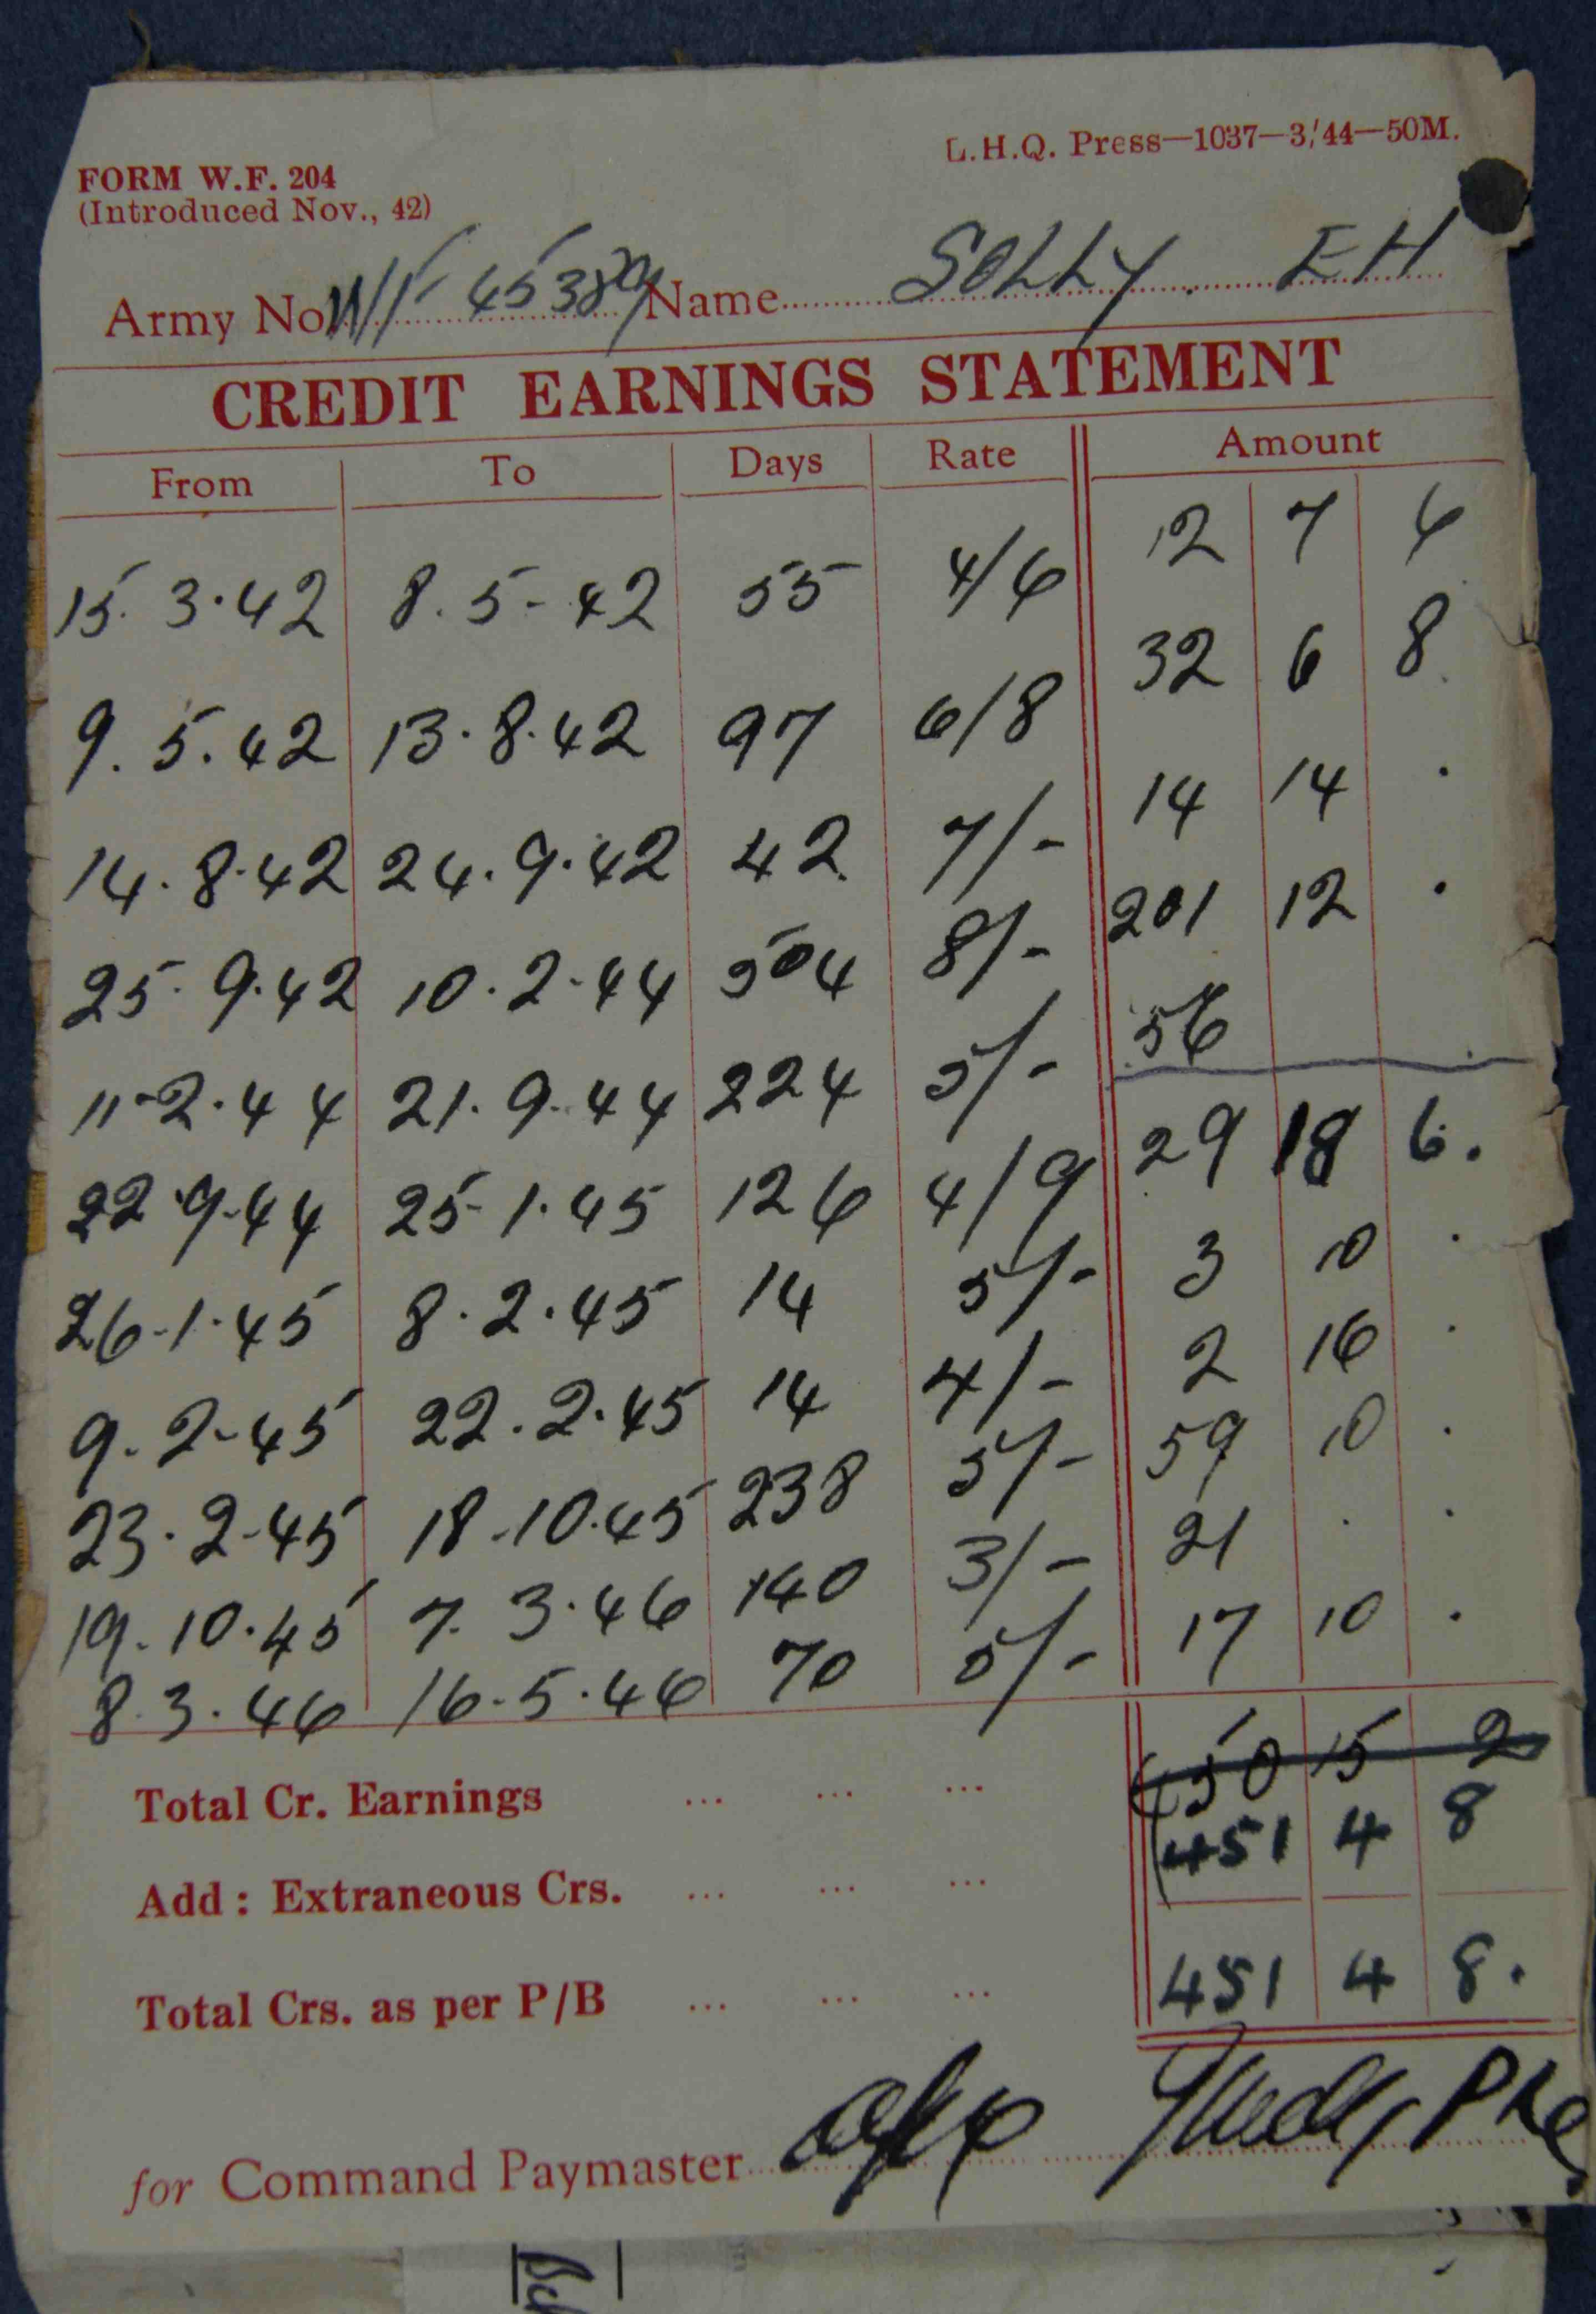 L.H.Q. Press—1037—3/'44—50M.
FORM W.F. 204
(Introduced Nov., 42)
Army No. Name SOLLY. E H
CREDIT EARNINGS STATEMENT
From To Days Rate Amount
15. 3. 42 8. 5 - 42 55 4/6 12 7 6
9. 5. 42 13. 8. 42 97 6/8 32 6 8
14. 8. 42 24. 9. 42 42 7/- 14 14 .
25. 9. 42 10. 2. 44 504 8/- 201 12 .
11-2. 44 21. 9. 44 224 5/- 56
22. 9-44 25-1. 45 126 4/9 29 18 6.
26-1. 45 8. 2. 45 14 5/- 3 10 .
9. 2-45 22. 2. 45 14 4/- 2 16 .
23. 2-45 18-10.45 238 5/- 59 10 .
19. 10. 45 7. 3. 46 140 3/- 21 . .
8. 3. 46 16-5. 46 70 5/- 17 10 .
450 15 2
Total Cr. Earnings ... ... ... 451 4 8
Add : Extraneous Crs. ... ... ...
Total Crs. as per P/B ... ... ... 451 4 8.
for Command Paymaster